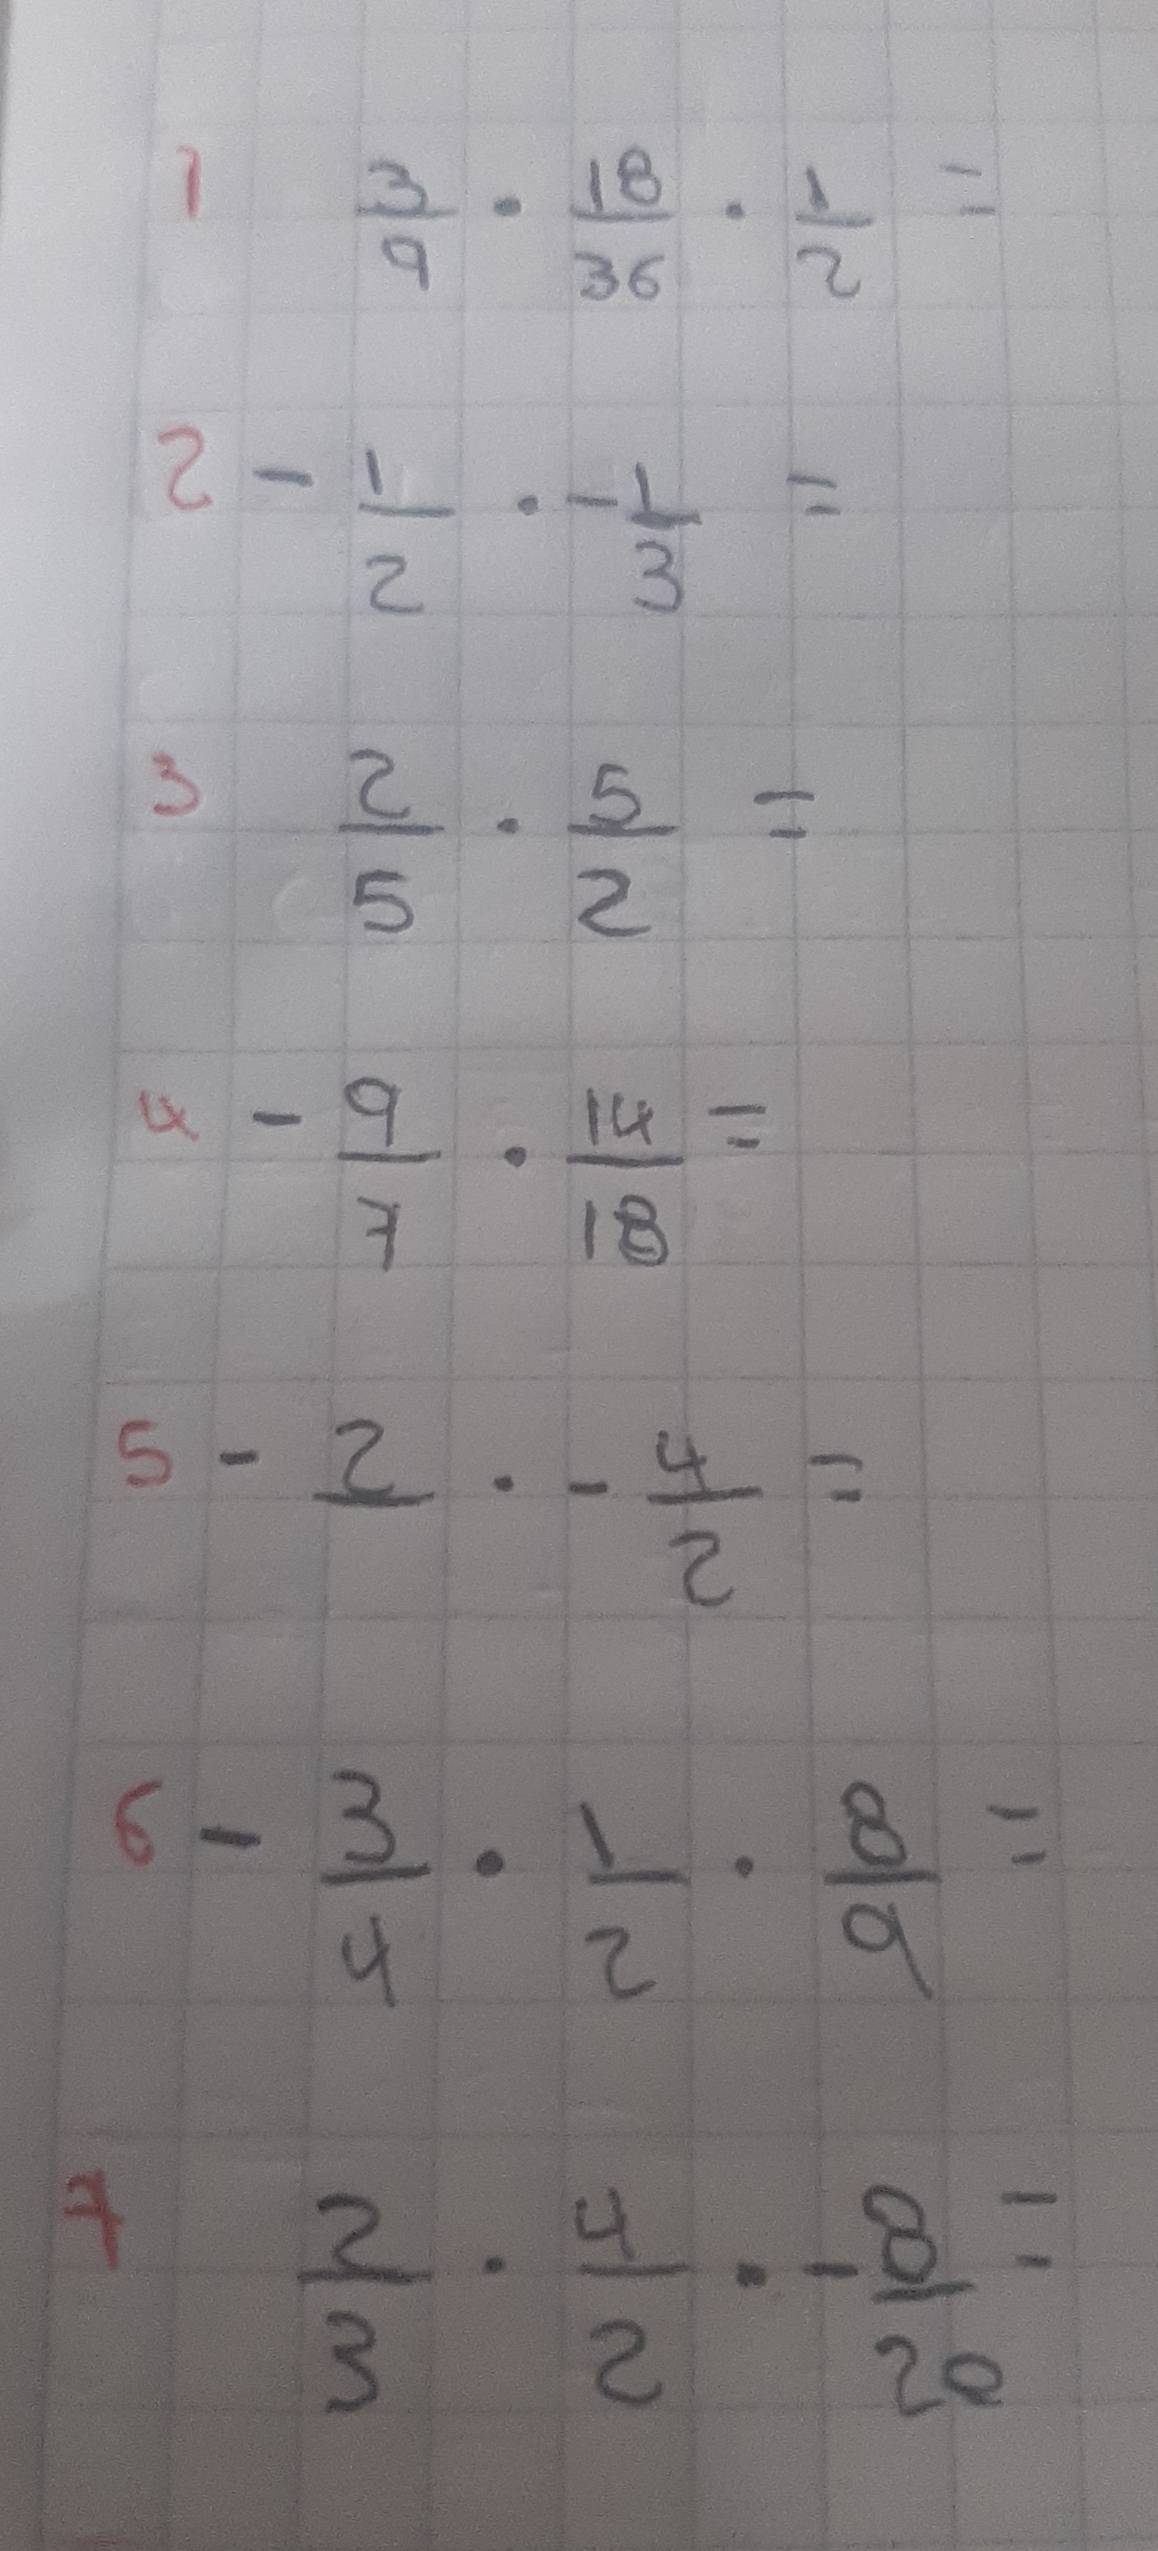 1 3/9 · 18/36 · 1/2 =
2 - 1/2 · - 1/3 =
3 2/5 · 5/2 =
4 - 9/7 · 14/18 =
5 - 2/ · - 4/2 =
6 - 3/4 · 1/2 · 8/9 =
7 2/3 · 4/2 · - 8/20 =